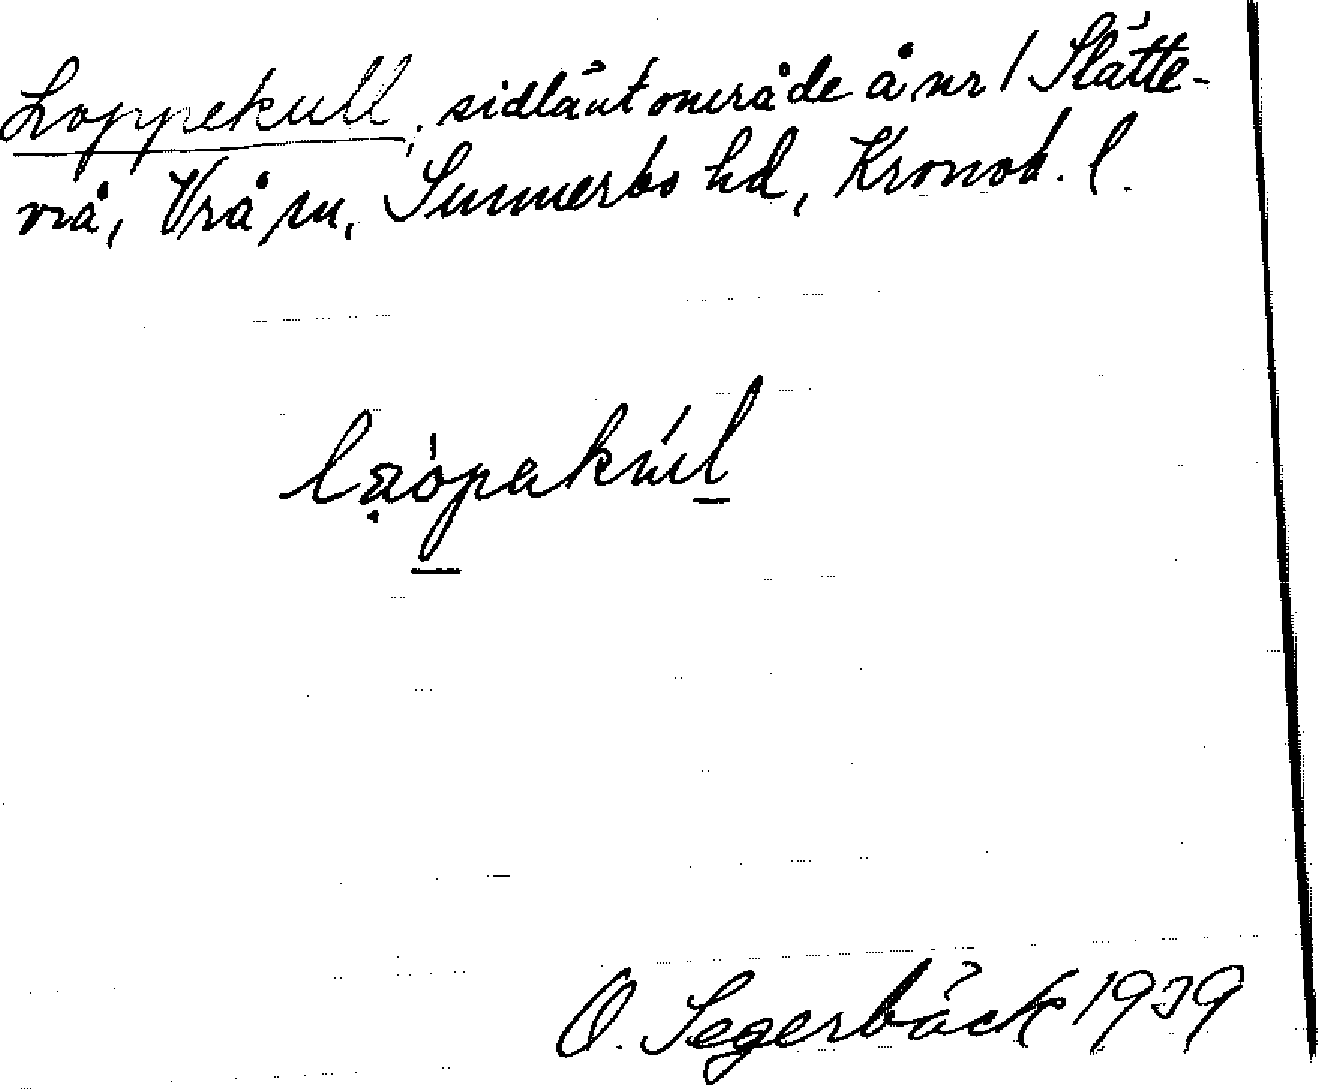 Loppekull, sidlänt område å nr 1 Slätte-
vrå, Vrå sn, Sunnerbo hd, Kronob. l.
O. Segerbäck 1939